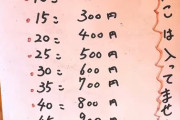 15 = 300円
20 = 400円
25 = 500円
30 = 600円
35 = 700円
40 = 800円
は入ってませ